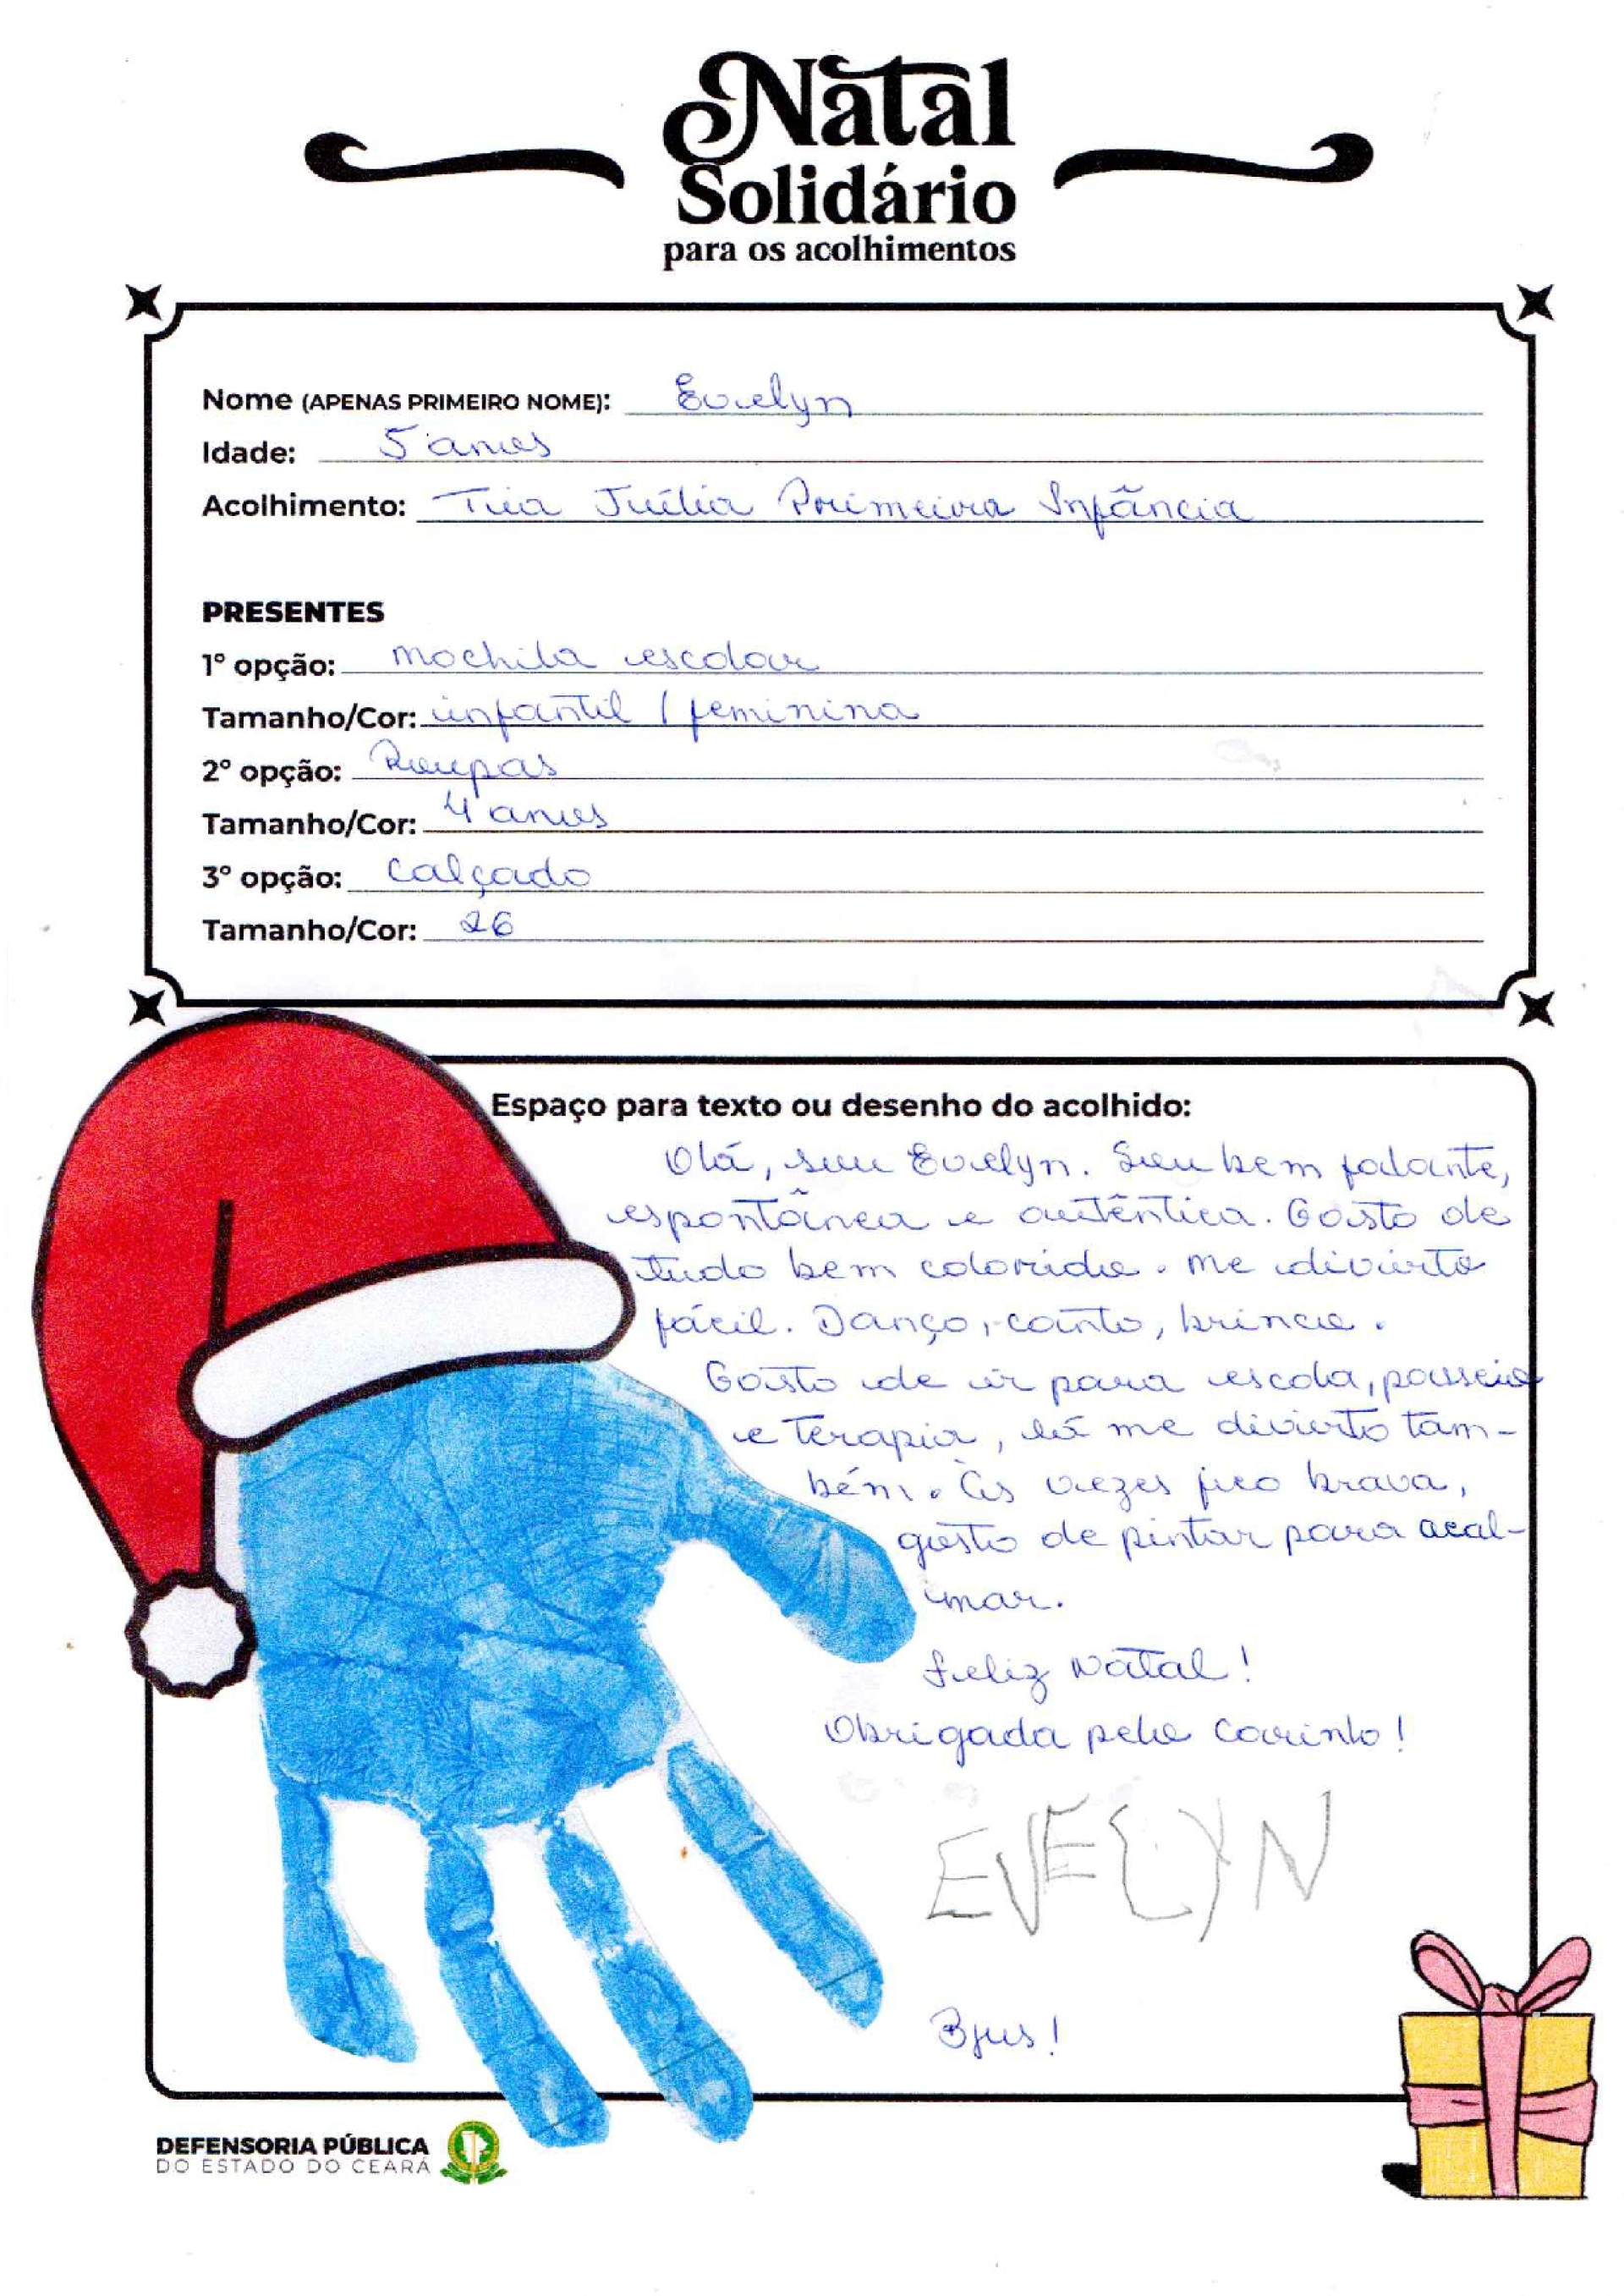 Natal
Solidário
para os acolhimentos
Nome (APENAS PRIMEIRO NOME): Evelyn
Idade: 5 anos
Acolhimento: Tia Júlia Primeira Infância
PRESENTES
1º opção: mochila escolar
Tamanho/Cor: infantil / feminina
2º opção: Roupas
Tamanho/Cor: 4 anos
3º opção: calçado
Tamanho/Cor: 26
Espaço para texto ou desenho do acolhido:
Olá, sou Evelyn. Sou bem falante,
espontânea e autêntica. Gosto de
tudo bem colorido. Me divirto
fácil. Danço, canto, brinco.
Gosto de ir para escola, passeio
e terapia, lá me divirto tam-
bém. Às vezes fico brava,
gosto de pintar para acal-
mar.
Feliz Natal!
Obrigada pelo carinho!
EVELYN
Bjus!
DEFENSORIA PÚBLICA
DO ESTADO DO CEARÁ